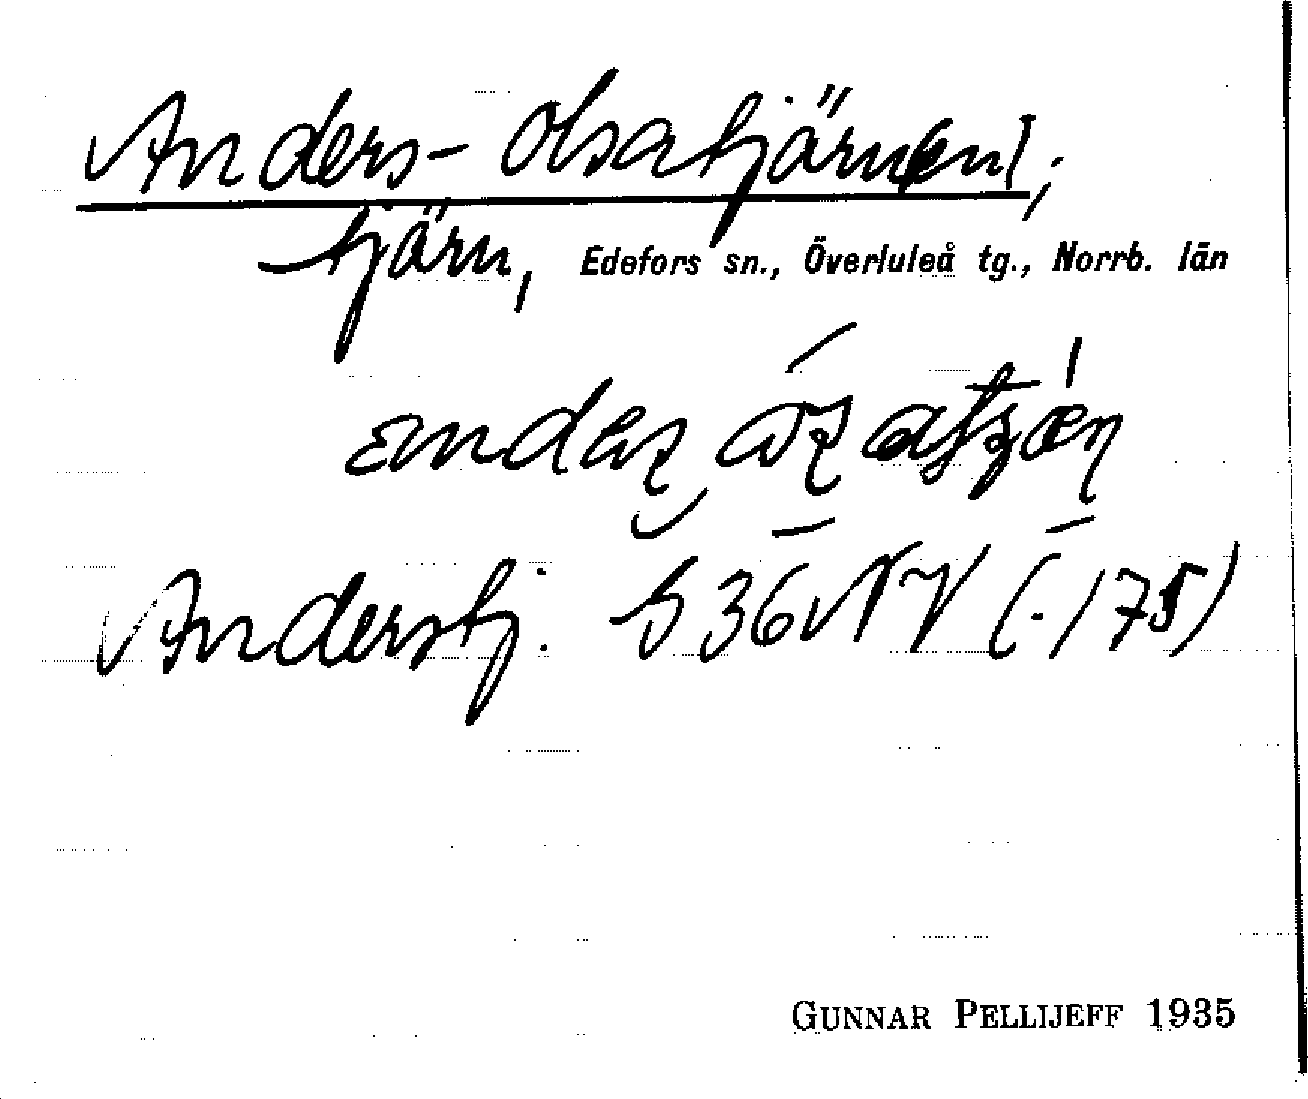 Anders-Olsatjärnen,
tjärn, Edefors sn., Överluleå tg., Norrb. län
Anderstj. S 36 NV (./75)
GUNNAR PELLIJEFF 1935